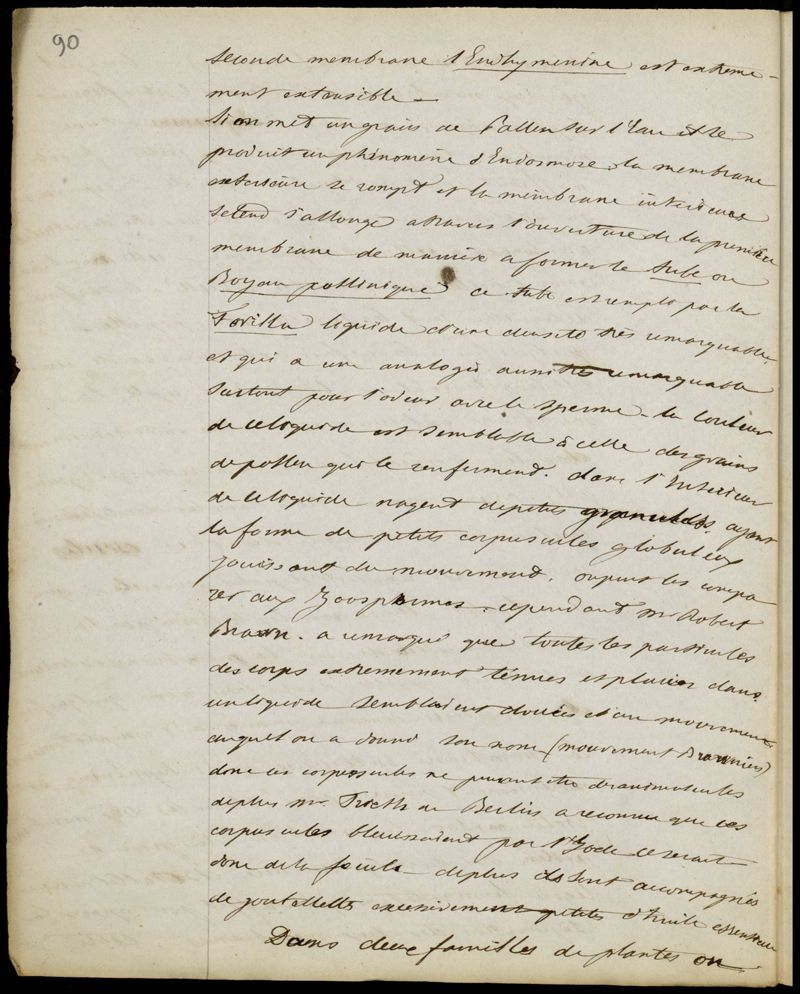 90
seconde membrane l'Endhyménine est extreme-
ment extensible —
Si on met un grain de Pollen sur l'Eau il se
produit un phénomène d'Endosmose, la membrane
exterieure se rompt et la membrane interieure
setend s'allonge atravers l'ouverture de la première
membrane de manière a former le tube ou
Boyau pollinique ce tube est rempli par la
Fovilla liquide d'une densité très remarquable,
et qui a une analogie aussi très remarquable
surtout pour l'odeur avec le sperme. la couleur
de ce liquide est semblable à celle des grains
de pollen qui le renferment. dans l'Interieur
de ce liquide nagent de petits granules ayant
la forme de petits corpuscules globuleux
jouissant du mouvement. on peut les compa
rer aux Zoospermes. cependant mr Robert
Brown. a remarqué que toutes les particules
des corps extremement ténues et placées dans
un liquide semblaient douées d'un mouvement
auquel on a donné son nom (mouvement Brownien)
donc ces corpuscules ne peuvent être des animalcules
de plus mr. Fritsh de Berlin a reconnu que ces
corpuscules bleuissaient par l'Iode ce serait
donc de la fécule — de plus ils sont accompagnés
de goutelletts excessivement petites d'huile essentielle
Dans deux familles de plantes on